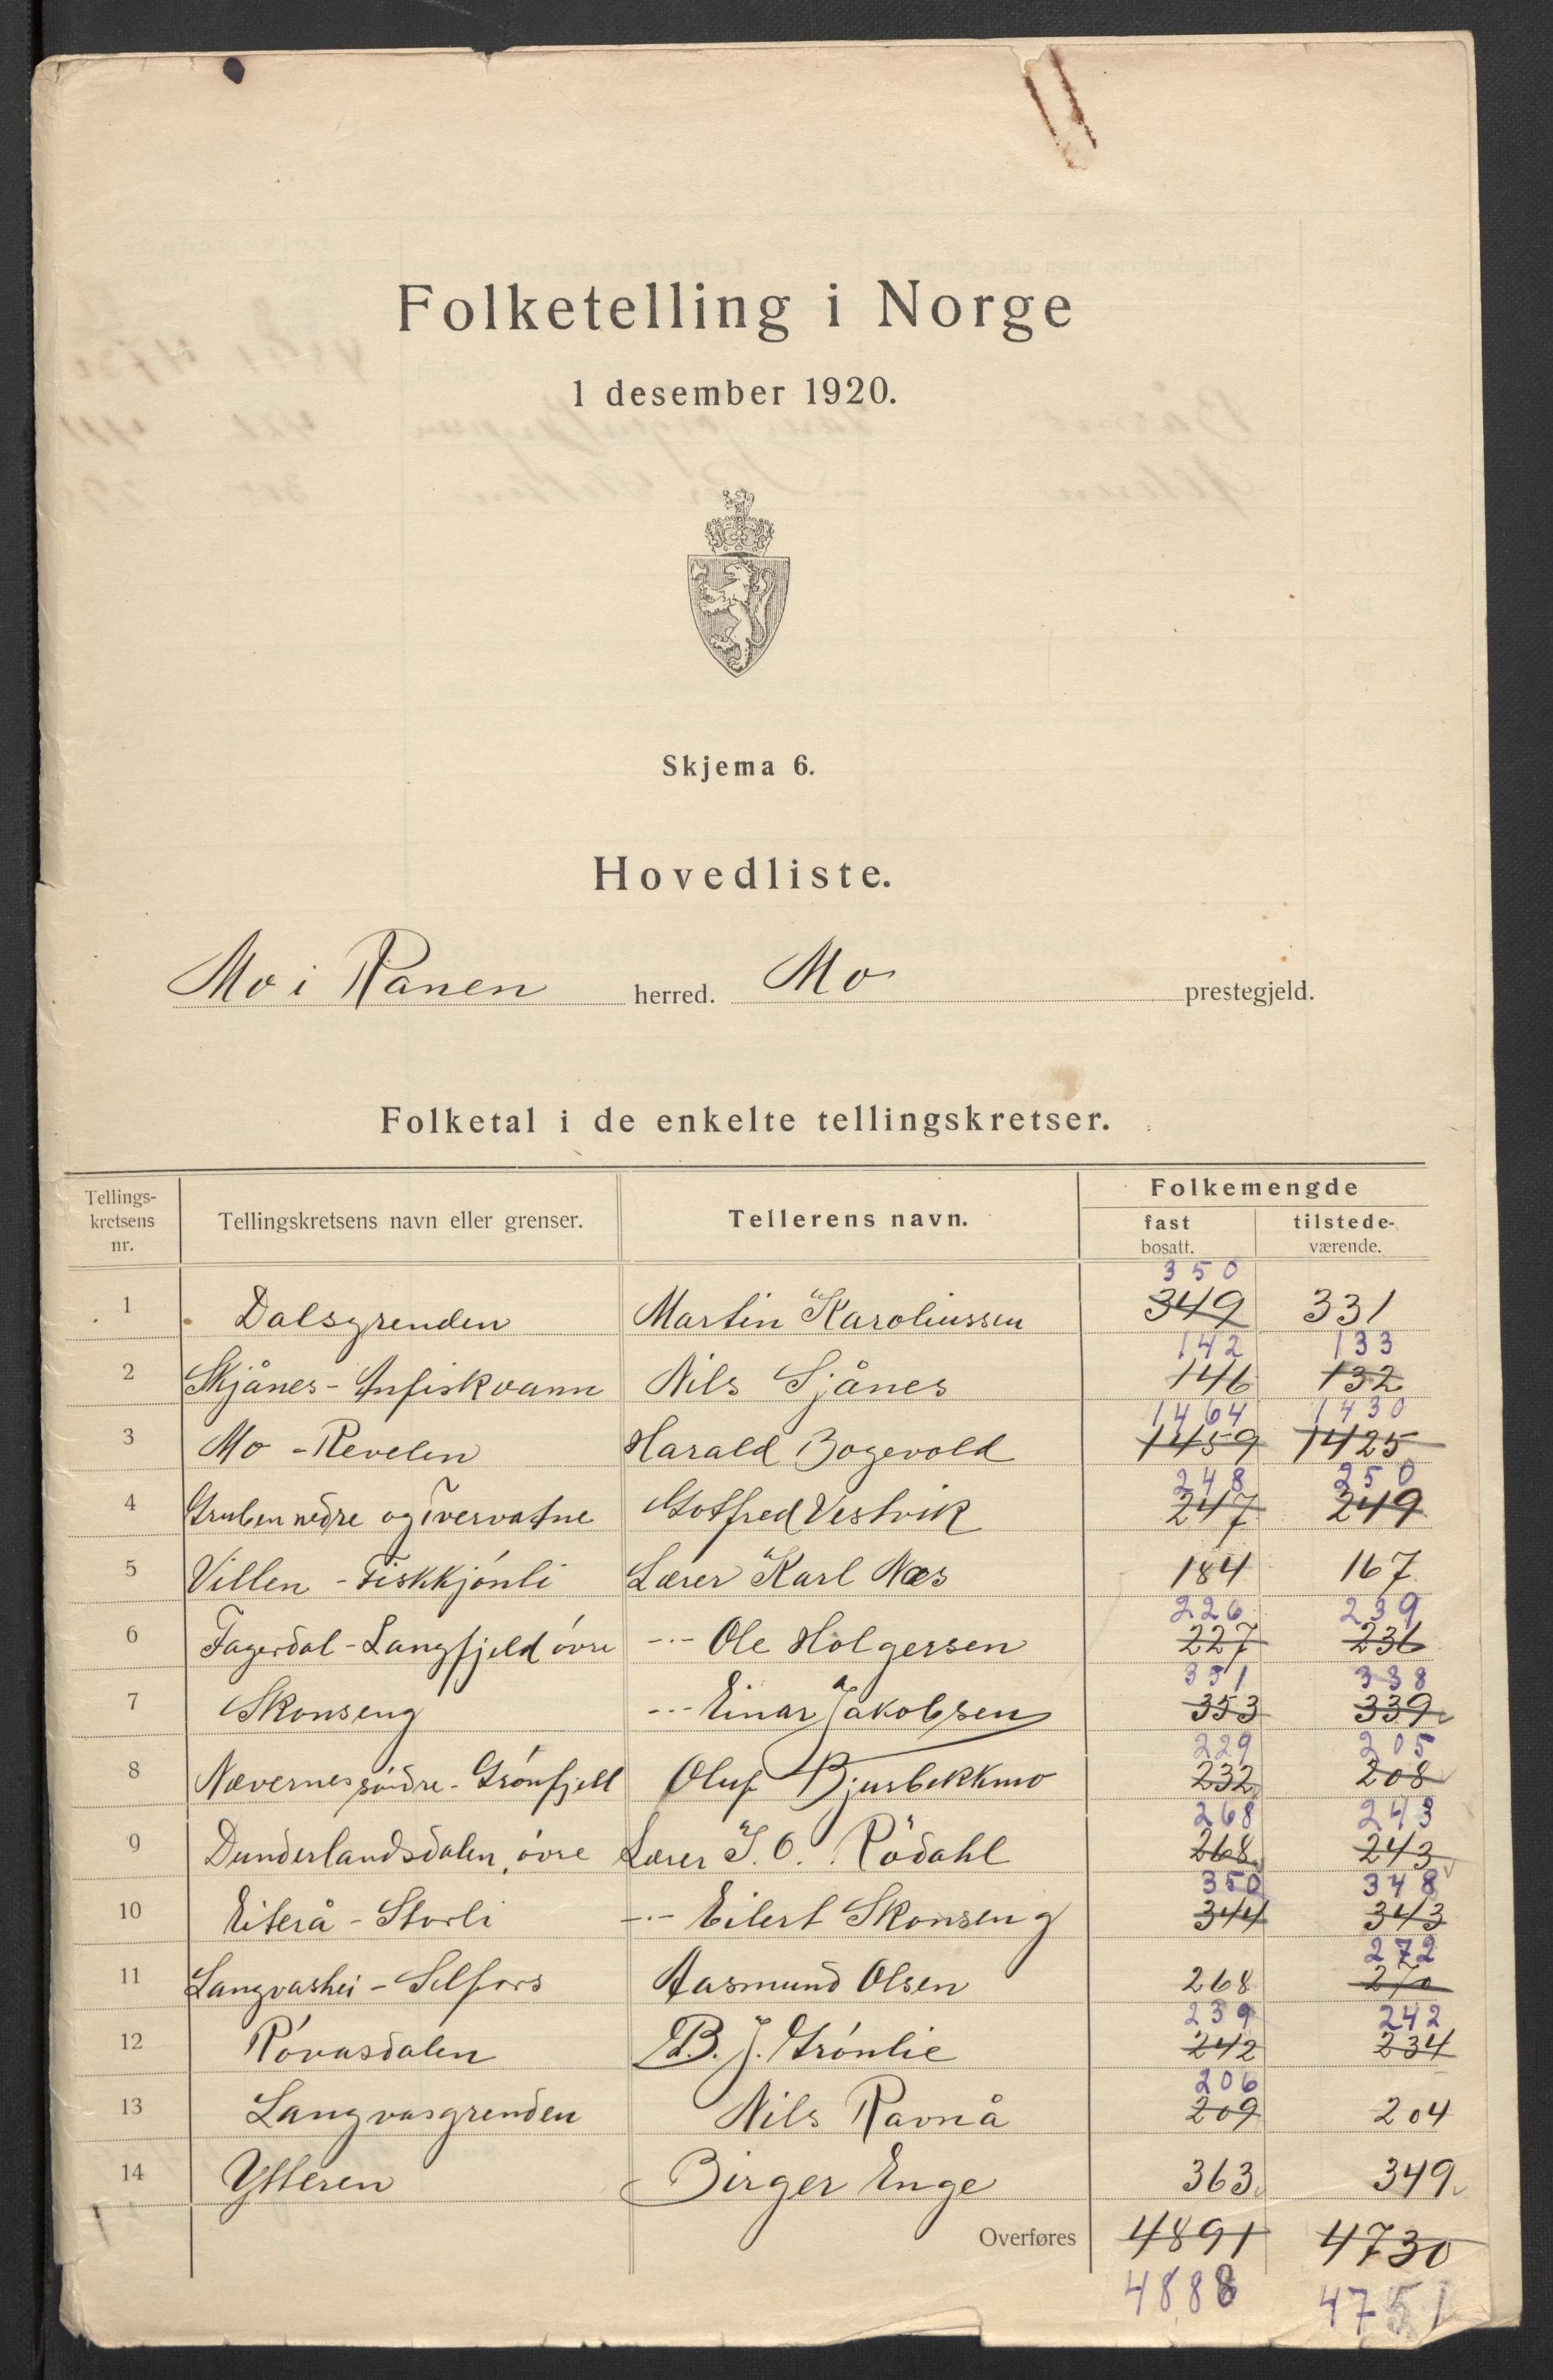 Folketelling i Norge
1 desember 1920.
Skjema 6.
Hovedliste.
Mo i Ranen herred. Mo prestegjeld.
Folketal i de enkelte tellingskretser.
Tellings-kretsens nr. Tellingskretsens navn eller grenser. Tellerens navn. Folkemengde
fast bosatt. tilstede-værende.
350
1 Dalsgrenden Martin Karoliussen 349 331
142 133
2 Skjånes - Anfiskvann Nils Sjånes 146 132
1464 1430
3 Mo - Revelen Harald Bogevold 1459 1425
248 250
4 Gruben nedre og Tvervatne Gotfred Vestvik 247 249
5 Villen - Fiskkjønli Lærer Karl Næs 184 167
226 239
6 Fagerdal - Langfjeld øvre -"- Ole Holgersen 227 236
351 338
7 Skonseng -"- Einar Jakobsen 353 339
229 205
8 Nævernes søndre - Grønfjell Oluf Bjurbekkmo 232 208
268 243
9 Dunderlandsdalen, øvre Lærer I. O. Rödahl 268 243
350 348
10 Eiterå - Storli -"- Eilert Skonseng 344 343
272
11 Langvashei - Selfors Aasmund Olsen 268 270
239 242
12 Røvasdalen B. J. Grønlie 242 234
206
13 Langvasgrenden Nils Ravnå 209 204
14 Ytteren Birger Enge 363 349
Overføres 4891 4730
4888 4751